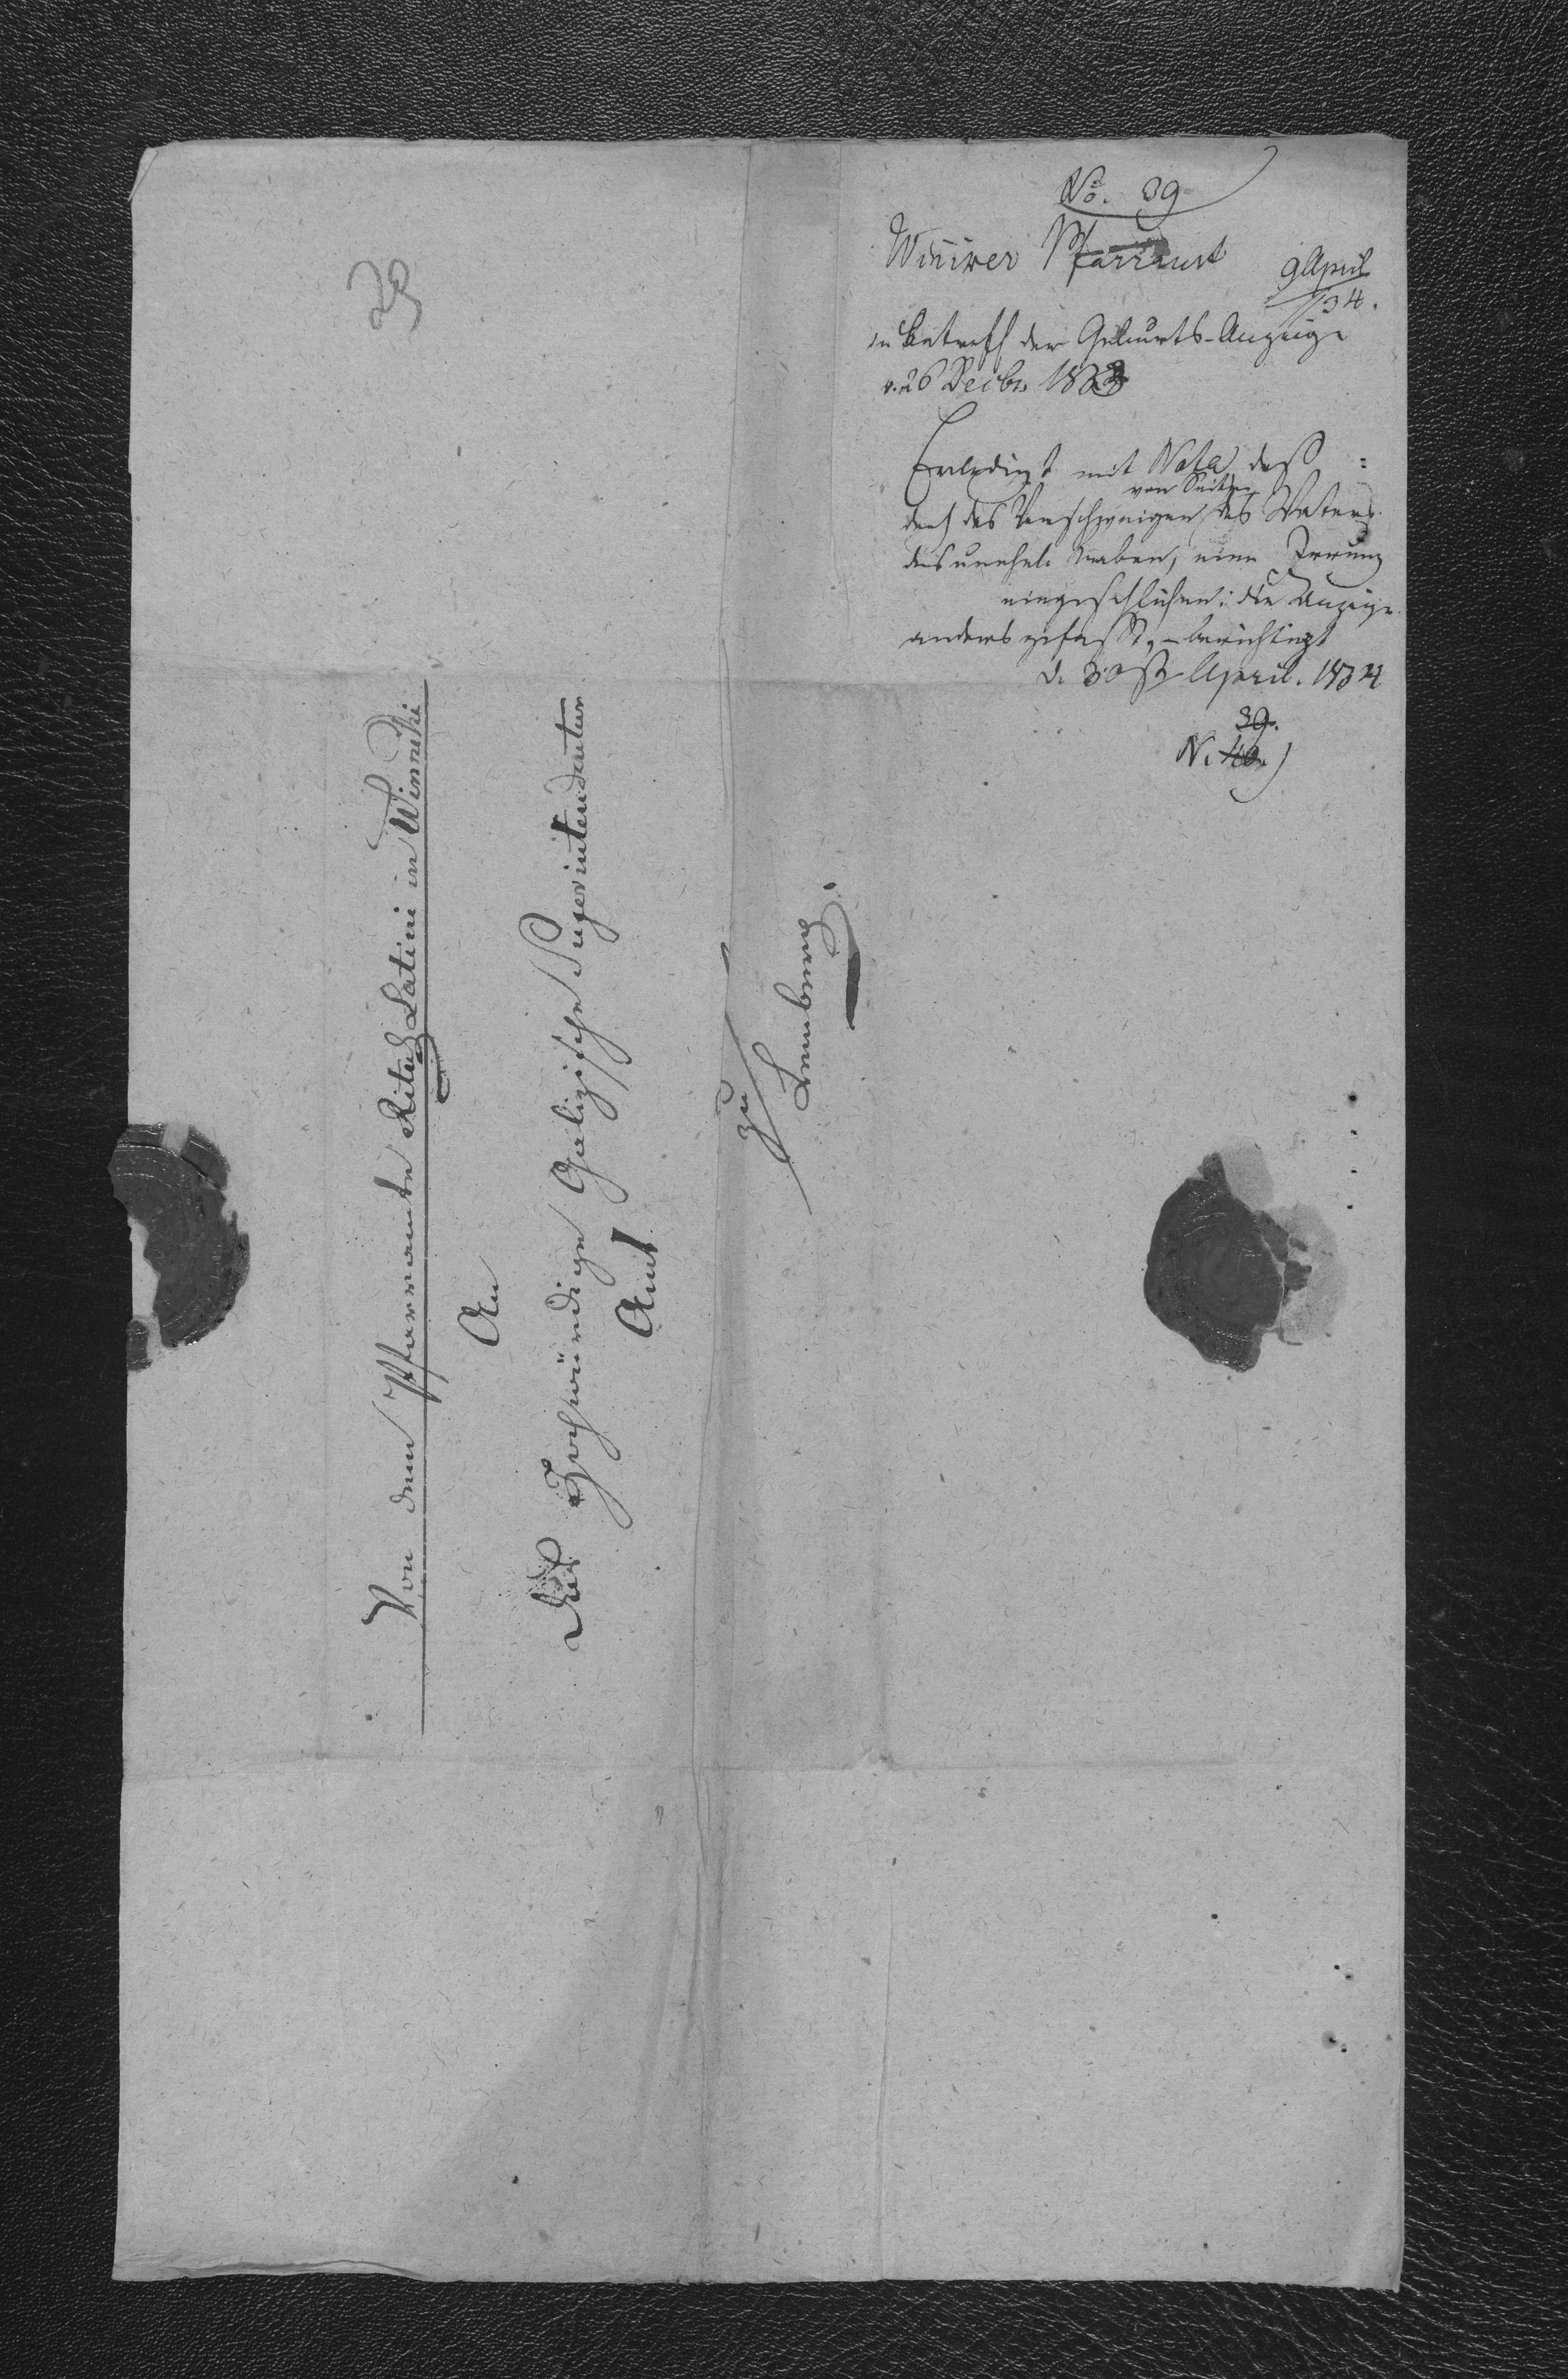 No. 39
Winiker Pfarramt
9 April
/34.
in betreff der Geburts-Anzeige
v. 26 Decbr. 1833
Erledigt mit Nota daß
durch das Verschweigen von Seiten des Vaters
des unehel. Knaben, eine Irrung
eingeschlichen: die Anzeige
anders gefaßt, - berichtigt
d. 30st April. 1834
39.
N.
39
Von dem Pfarramte Ritus Latini in Winniki
An
Das Hochwürdige Galizische Superintendenten
Amt
zu
Lemberg